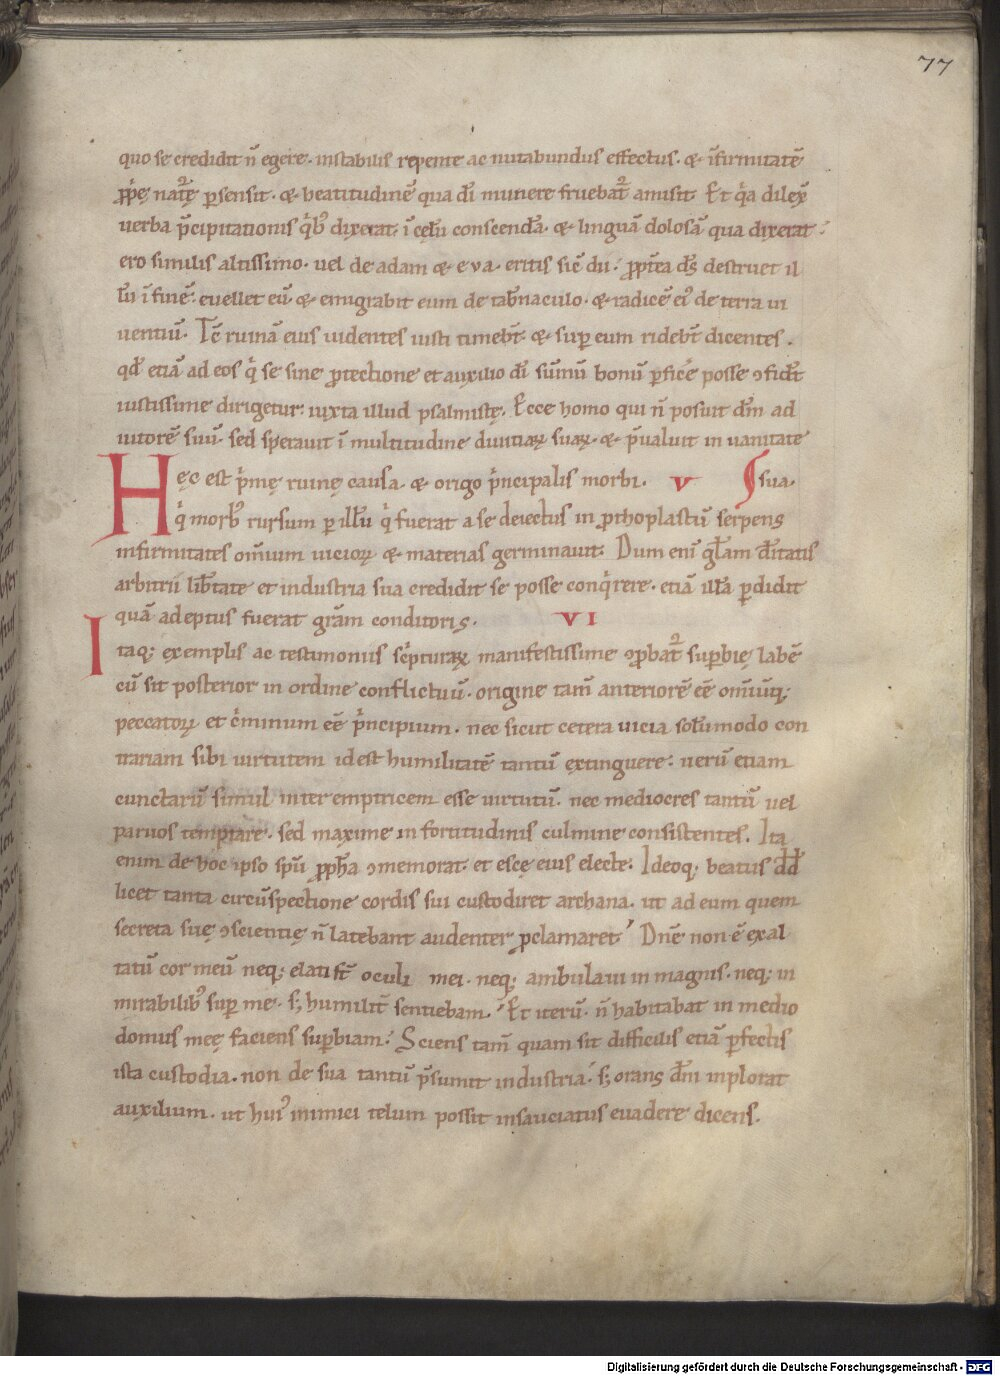 77
quo se credidit n̄ egere. instabilis repente ac nutabundus effectus. & īfirmitatē
ꝓpͥę nat᷑ę ꝑsensit. & beatitudinē qua dī munere fruebat᷑ amisit. Et qͥa dilex̄
uerba p̄cipitationis qͥbꝰ dixerat. ī cęlū conscendā. & linguā dolosā qua dixerat:
ero similis altissimo. uel de adam & eva. eritis sic̄ dii: ꝓpt̄ea ds̄ destruet il
lū ī finē. euellet eū. & emigrabit eum de tab̄naculo. & radicē eiꝰ de terra ui
uentiū. Tc̄ ruinā eius uidentes iusti timebt̄. & suꝑ eum ridebt̄ dicentes.
qd̄ etiā ad eos qͥ se sine ꝓtectione et auxilio dī sūmū bonū ꝑficͤe posse ꝯfidt̄
iustissime dirigetur: iuxta illud psalmistę. Ecce homo qui n̄ posuit dm̄ ad
iutorē suū. sed sperauit ī multitudine diuitiaꝝ suaꝝ. & p̄ualuit in uanitate
Hęc est pͥmę ruinę causa. & origo pͥncipalis morbi. V sua.
qͥ morbꝰ rursum ꝑ illū qͥ fuerat a se deiectus in ꝓthoplastū serpens
infirmitates om̄ium uicioꝝ & materias germinauit. Dum eni gl̄am d̄itatis
arbitrii lib̄tate et industria sua credidit se posse conqͥrere. etiā illā ꝑdidit
quā adeptus fuerat grām conditoris. VI
Itaq; exemplis ac testimoniis scͥpturaꝝ manifestissime ꝯprobat᷑ suꝑbię labē
cū sit posterior in ordine conflictuū. origine tam̄ anteriorē eē om̄iūq;
peccatoꝝ et cͥminum eē pͥncipium. nec sicut cetera uicia solūmodo con
trariam sibi uirtutem id est humilitatē tantū extinguere: uerū etiam
cunctarū simul interemptricem esse uirtutū. nec mediocres tantū uel
paruos temptare. sed maxime in fortitudinis culmine consistentes. Ita
enim de hoc ipso spū ꝓph̄a ꝯmemorat. et escę eius electe: Ideoq; beatus dd̄
licet tanta circūspectione cordis sui custodiret archana. ut ad eum quem
secreta suę ꝯscientię n̄ latebant audenter ꝓclamaret. Dn̄e non ē exal
tatū cor meū neq; elati st̄ oculi mei. neq; ambulaui in magnis. neq; in
mirabilibꝰ suꝑ me. s; humilit̄ sentiebam. Et iterū. n̄ habitabat in medio
domus meę faciens suꝑbiam: Sciens tam̄ quam sit difficilis etiā ꝑfectis
ista custodia. non de sua tantū p̄sumit industria. s; orans dm̄ inplorat
auxilium. ut huiꝰ inimici telum possit insauciatus euadere dicens.
Digitalisierung gefördert durch die Deutsche Forschungsgemeinschaft - DFG